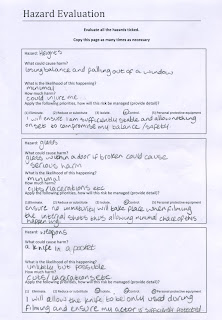 Hazard Evaluation
Evaluate all the hazards ticked.
Copy this page as many times as necessary
Hazard: Heights
What could cause harm?
losing balance and falling out of a window
What is the likelihood of this happening?
minimal
How much harm?
could injure me
Apply the following priorities, how will this risk be managed (provide detail)?
1) Eliminate 2) Reduce or substitute 3) Isolate 4) Control 5) Personal protective equipment
I will ensure I am sufficiently stable and allow nothing
on set to compromise my balance / safety
Hazard: glass
What could cause harm?
glass within a door if broken could cause
serious harm
What is the likelihood of this happening?
minimal
How much harm?
cuts/lacerations etc
Apply the following priorities, how will this risk be managed (provide detail)?
1) Eliminate 2) Reduce or substitute 3) Isolate 4) Control 5) Personal protective equipment
ensure no will take place when filming
the internal shots thus allowing minimal chance of this
happening
Hazard: weapons
What could cause harm?
a knife in a pocket
What is the likelihood of this happening?
unlikely but possible
How much harm?
cuts/lacerations etc
Apply the following priorities, how will this risk be managed (provide detail)?
1) Eliminate 2) Reduce or substitute 3) Isolate 4) Control 5) Personal protective equipment
I will allow the knife to be only used during
filming and ensure my actor is